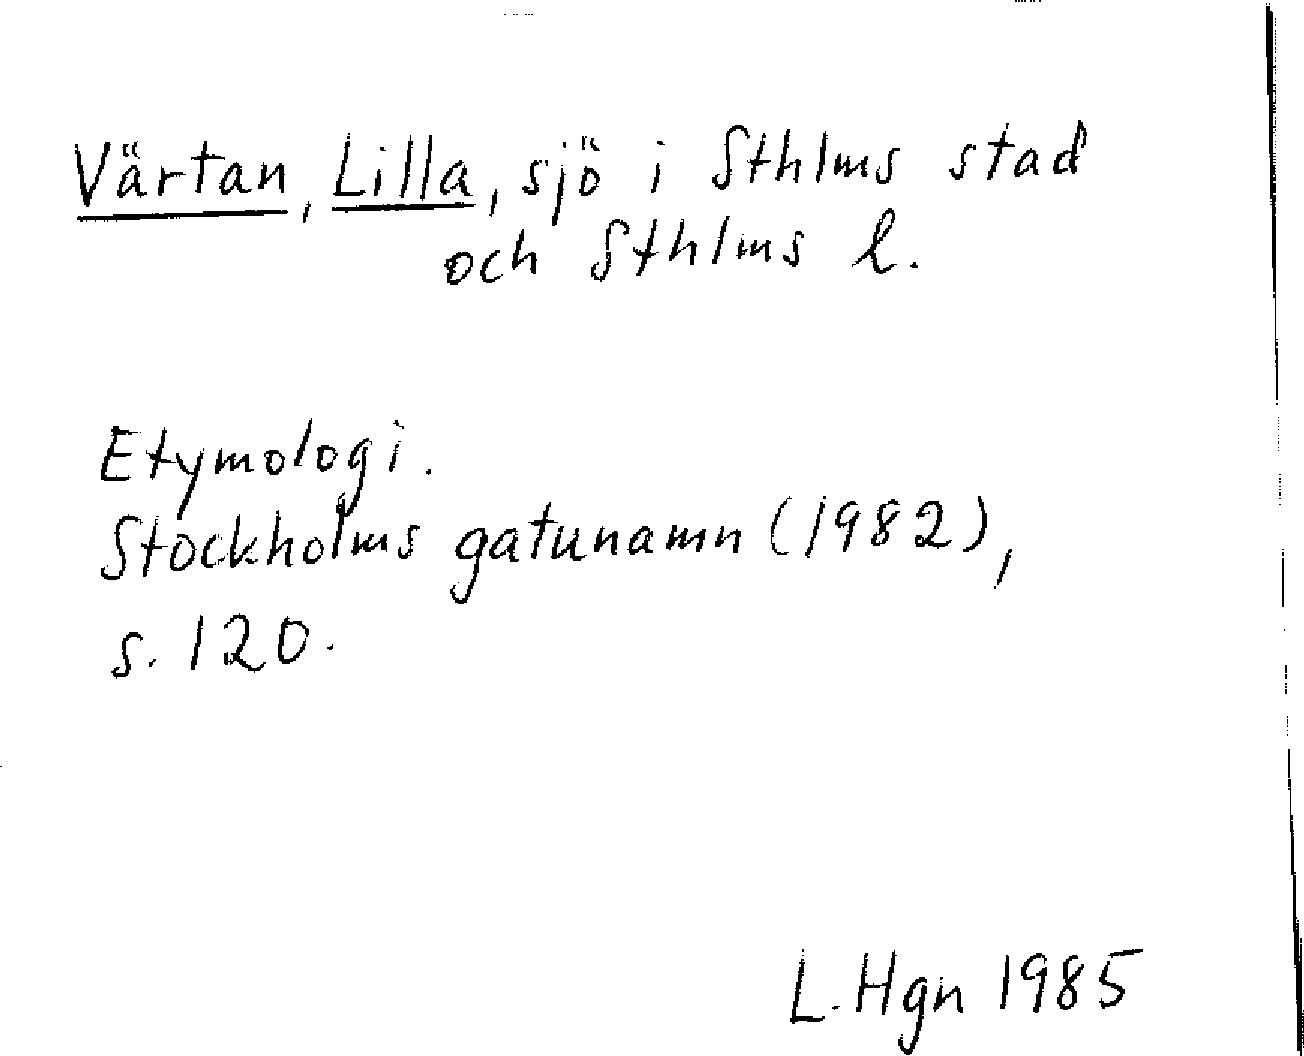 Värtan, Lilla, sjö i Sthlms stad
och Sthlms l.
Etymologi.
Stockholms gatunamn (1982),
s. 120.
L. Hgn 1985